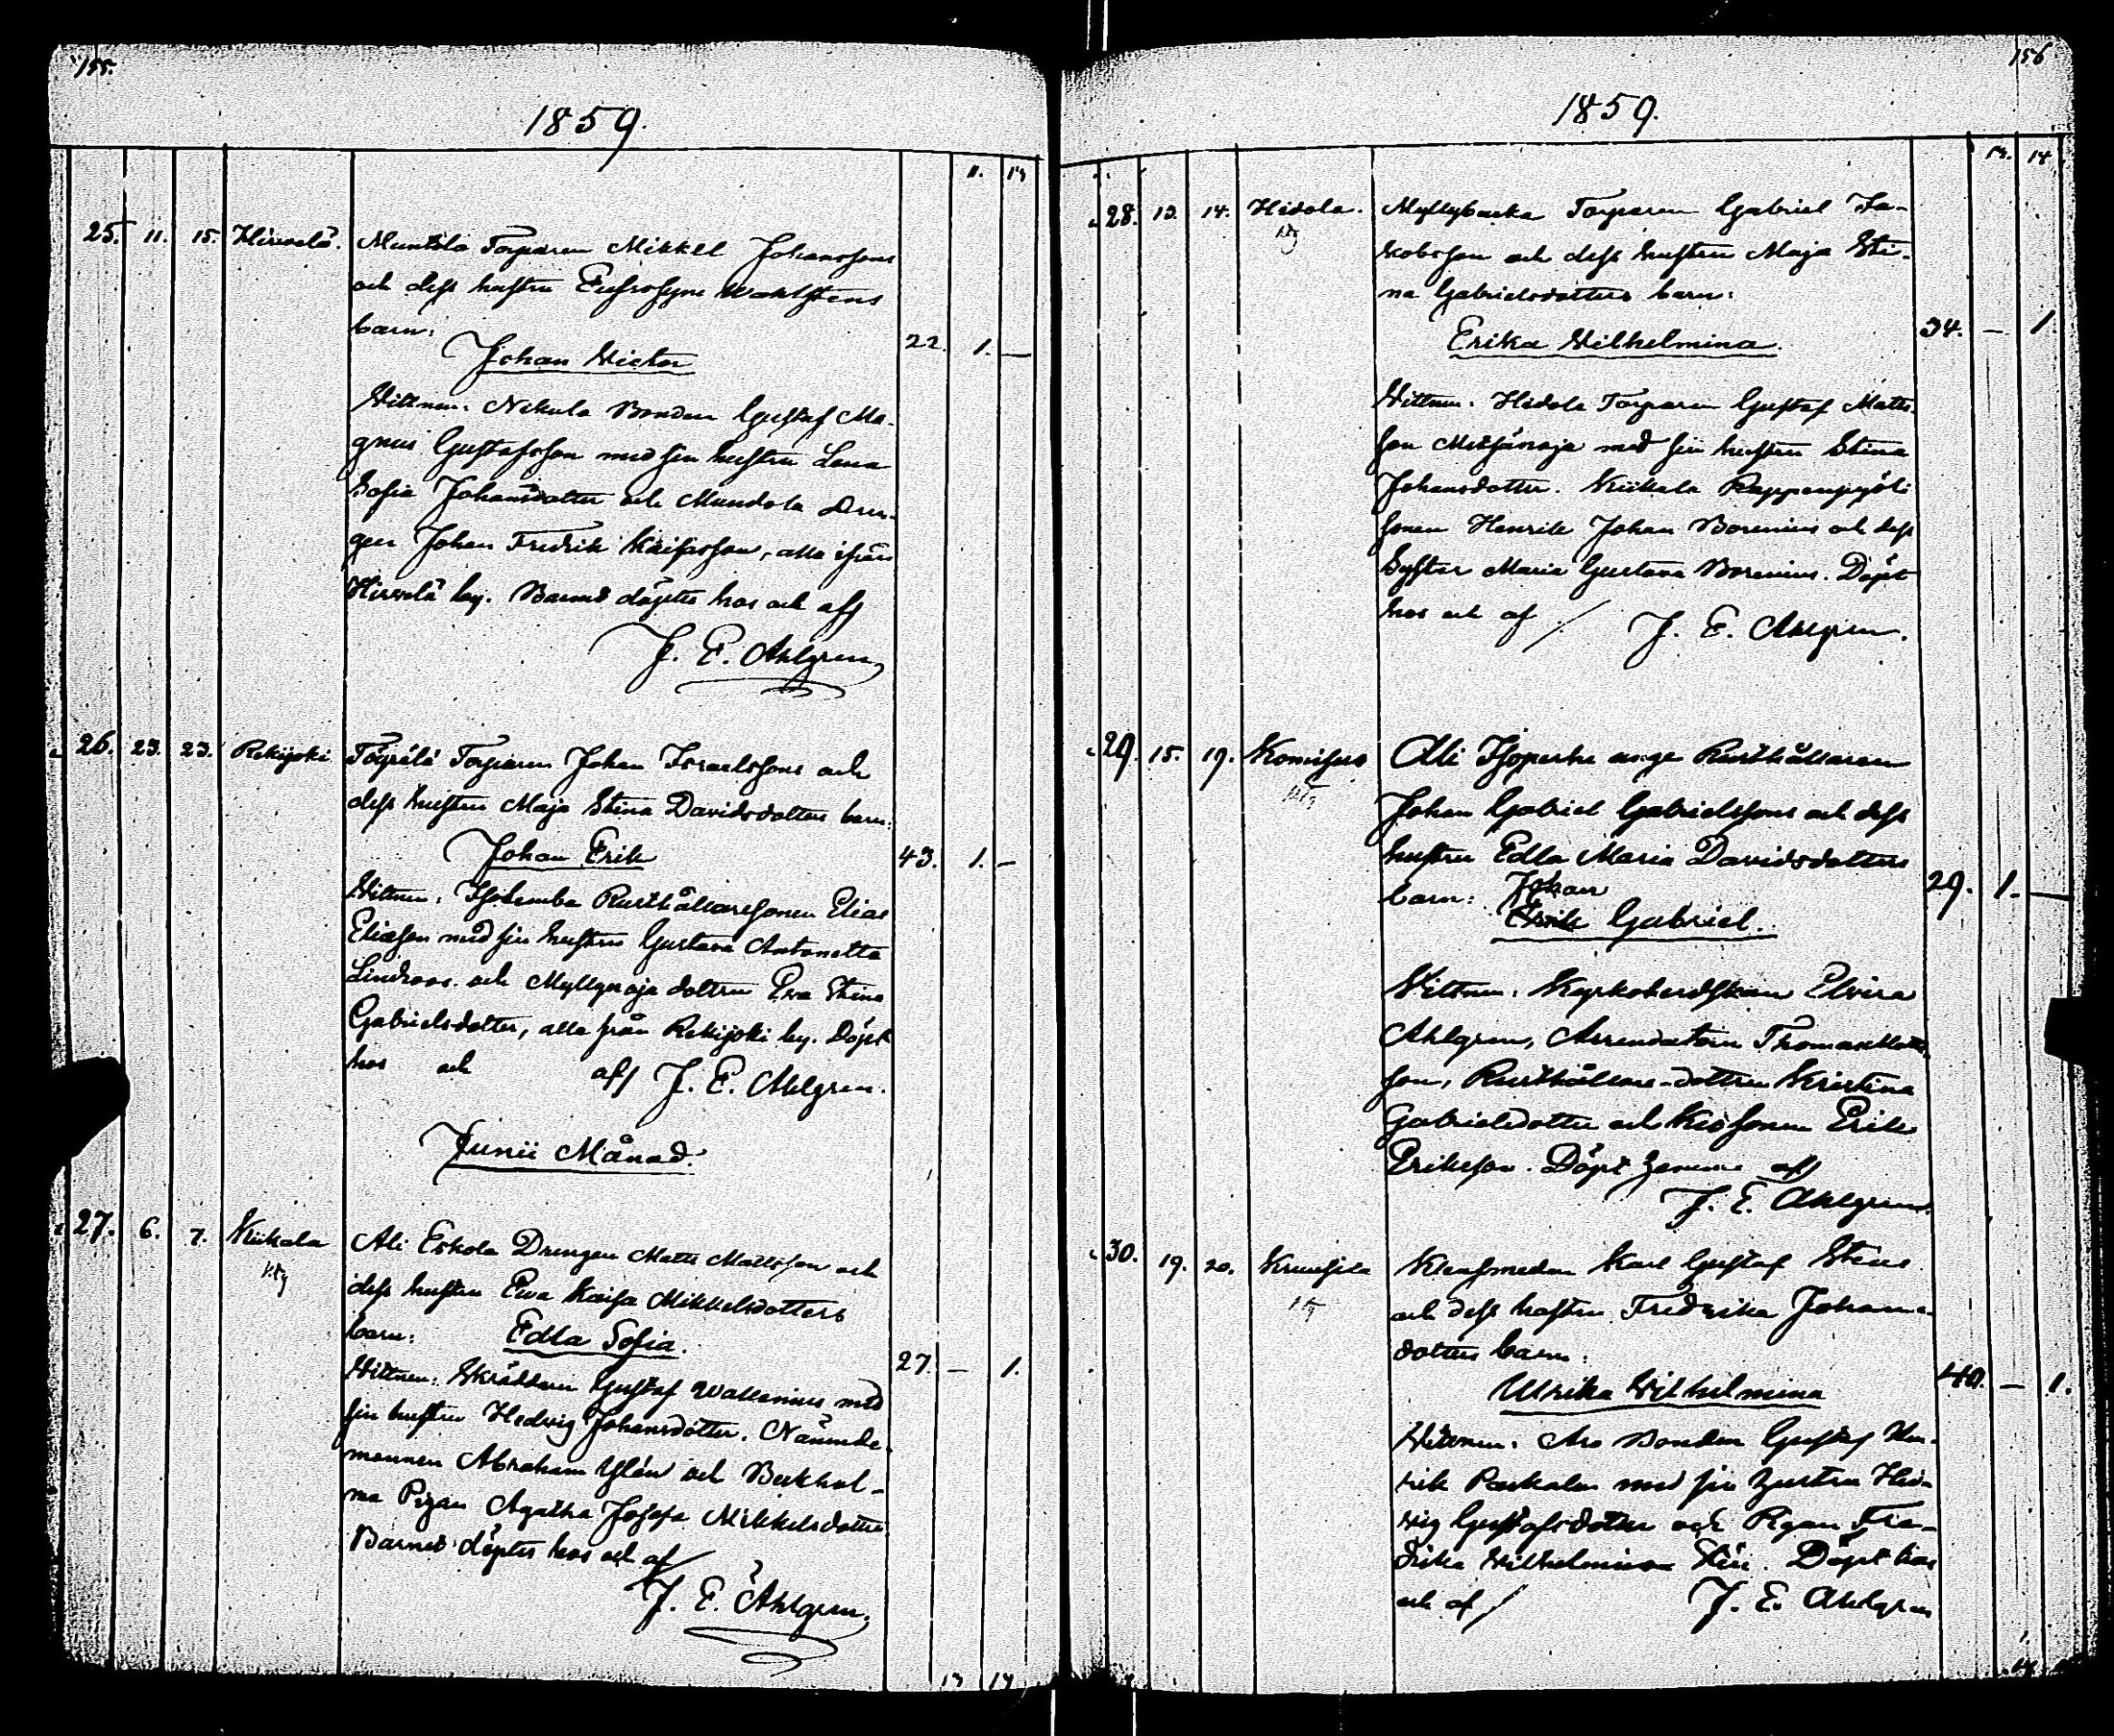 155.
1859.
11. 14
25. 11. 15. Hirvelä. Muntola Torparen Mikkel Johanssons
och dess hustru Eufrosyne Wahlstens
barn:
Johan Victor 22. 1. —
Vittnen: Nekula Bonden Gustaf Ma-
gnus Gustafsson med sin hustru Lena
Sofia Johansdotter och Mundola Dren-
gen Johan Fredrik Kaisasson, alla ifrån
Hirvelä by. Barnet döptes hos och af/
J. E. Ahlgren
26. 23. 23. Rekijoki Töyrälä Torparen Johan Israelssons och
dess hustru Maja Stina Davidsdotters barn:
Johan Erik 43. 1. —
Vittnen: Isotemba Rusthållaresonen Elias
Eliasson med sin hustru Gustava Antonetta
Lindroos och Myllynoja dottren Eva Stina
Gabrielsdotter, alla från Rekijoki by. Döpt
hos och af/ J. E. Ahlgren.
Junii Månad.
27. 6. 7. Kiikala Ali Eskola Drengen Matts Mattsson och
dess hustru Eva Kaisa Mikkelsdotters
barn: Edla Sofia.
27. — 1.
Vittnen: Skräddaren Gustaf Wallenius med
sin hustru Hedvig Johansdotter. Nämnde-
mannen Abraham Ylén och Bukhol-
ma Pigan Agatha Josefa Mikkelsdotter
Barnet döptes hos och af/
J. E. Ahlgren.
13 14
156
1859.
13. 14
28. 13. 14. Hidola. Myllybacka Torparen Gabriel Ja-
kobsson och dess hustru Maja Sti-
na Gabrielsdotters barn:
Erika Wilhelmina. 34. — 1.
Vittnen: Hidola Torparen Gustaf Matts-
son Metsänoja med sin hustru Stina
Johansdotter. Kiikala
sonen Henrik Johan Borenius och dess
Syster Maria Gustava Borenius. Döpt
hos och af / J. E. Ahlgren.
29. 15. 19. Komisuo Ali Isoperhe unge Rusthållaren
Johan Gabriel Gabrielssons och dess
hustru Edla Maria Davidsdotters
barn: Johan
Erik Gabriel. 29. 1. —
Vittnen: Kyrkoherdskan Elvira
Ahlgren, Arrendatorn Thomas Matts-
son, Rusthållare-dottren Kristina
Gabrielsdotter och sonen Erik
Eriksson. Döpt hemma af/
J. E. Ahlgren.
30. 19. 20. Kruusila Klensmeden Karl Gustaf Stens
och dess hustru Fredrika Johans-
dotters barn:
Ulrika Wilhelmina 40. — 1.
Vittnen: Aro Bonden Gustaf Hen-
rik Paskalin med sin hustru Hed-
vig Gustafsdotter och Pigan Fre-
drika Wilhelmina Döpt hos
och af / J. E. Ahlgren
14